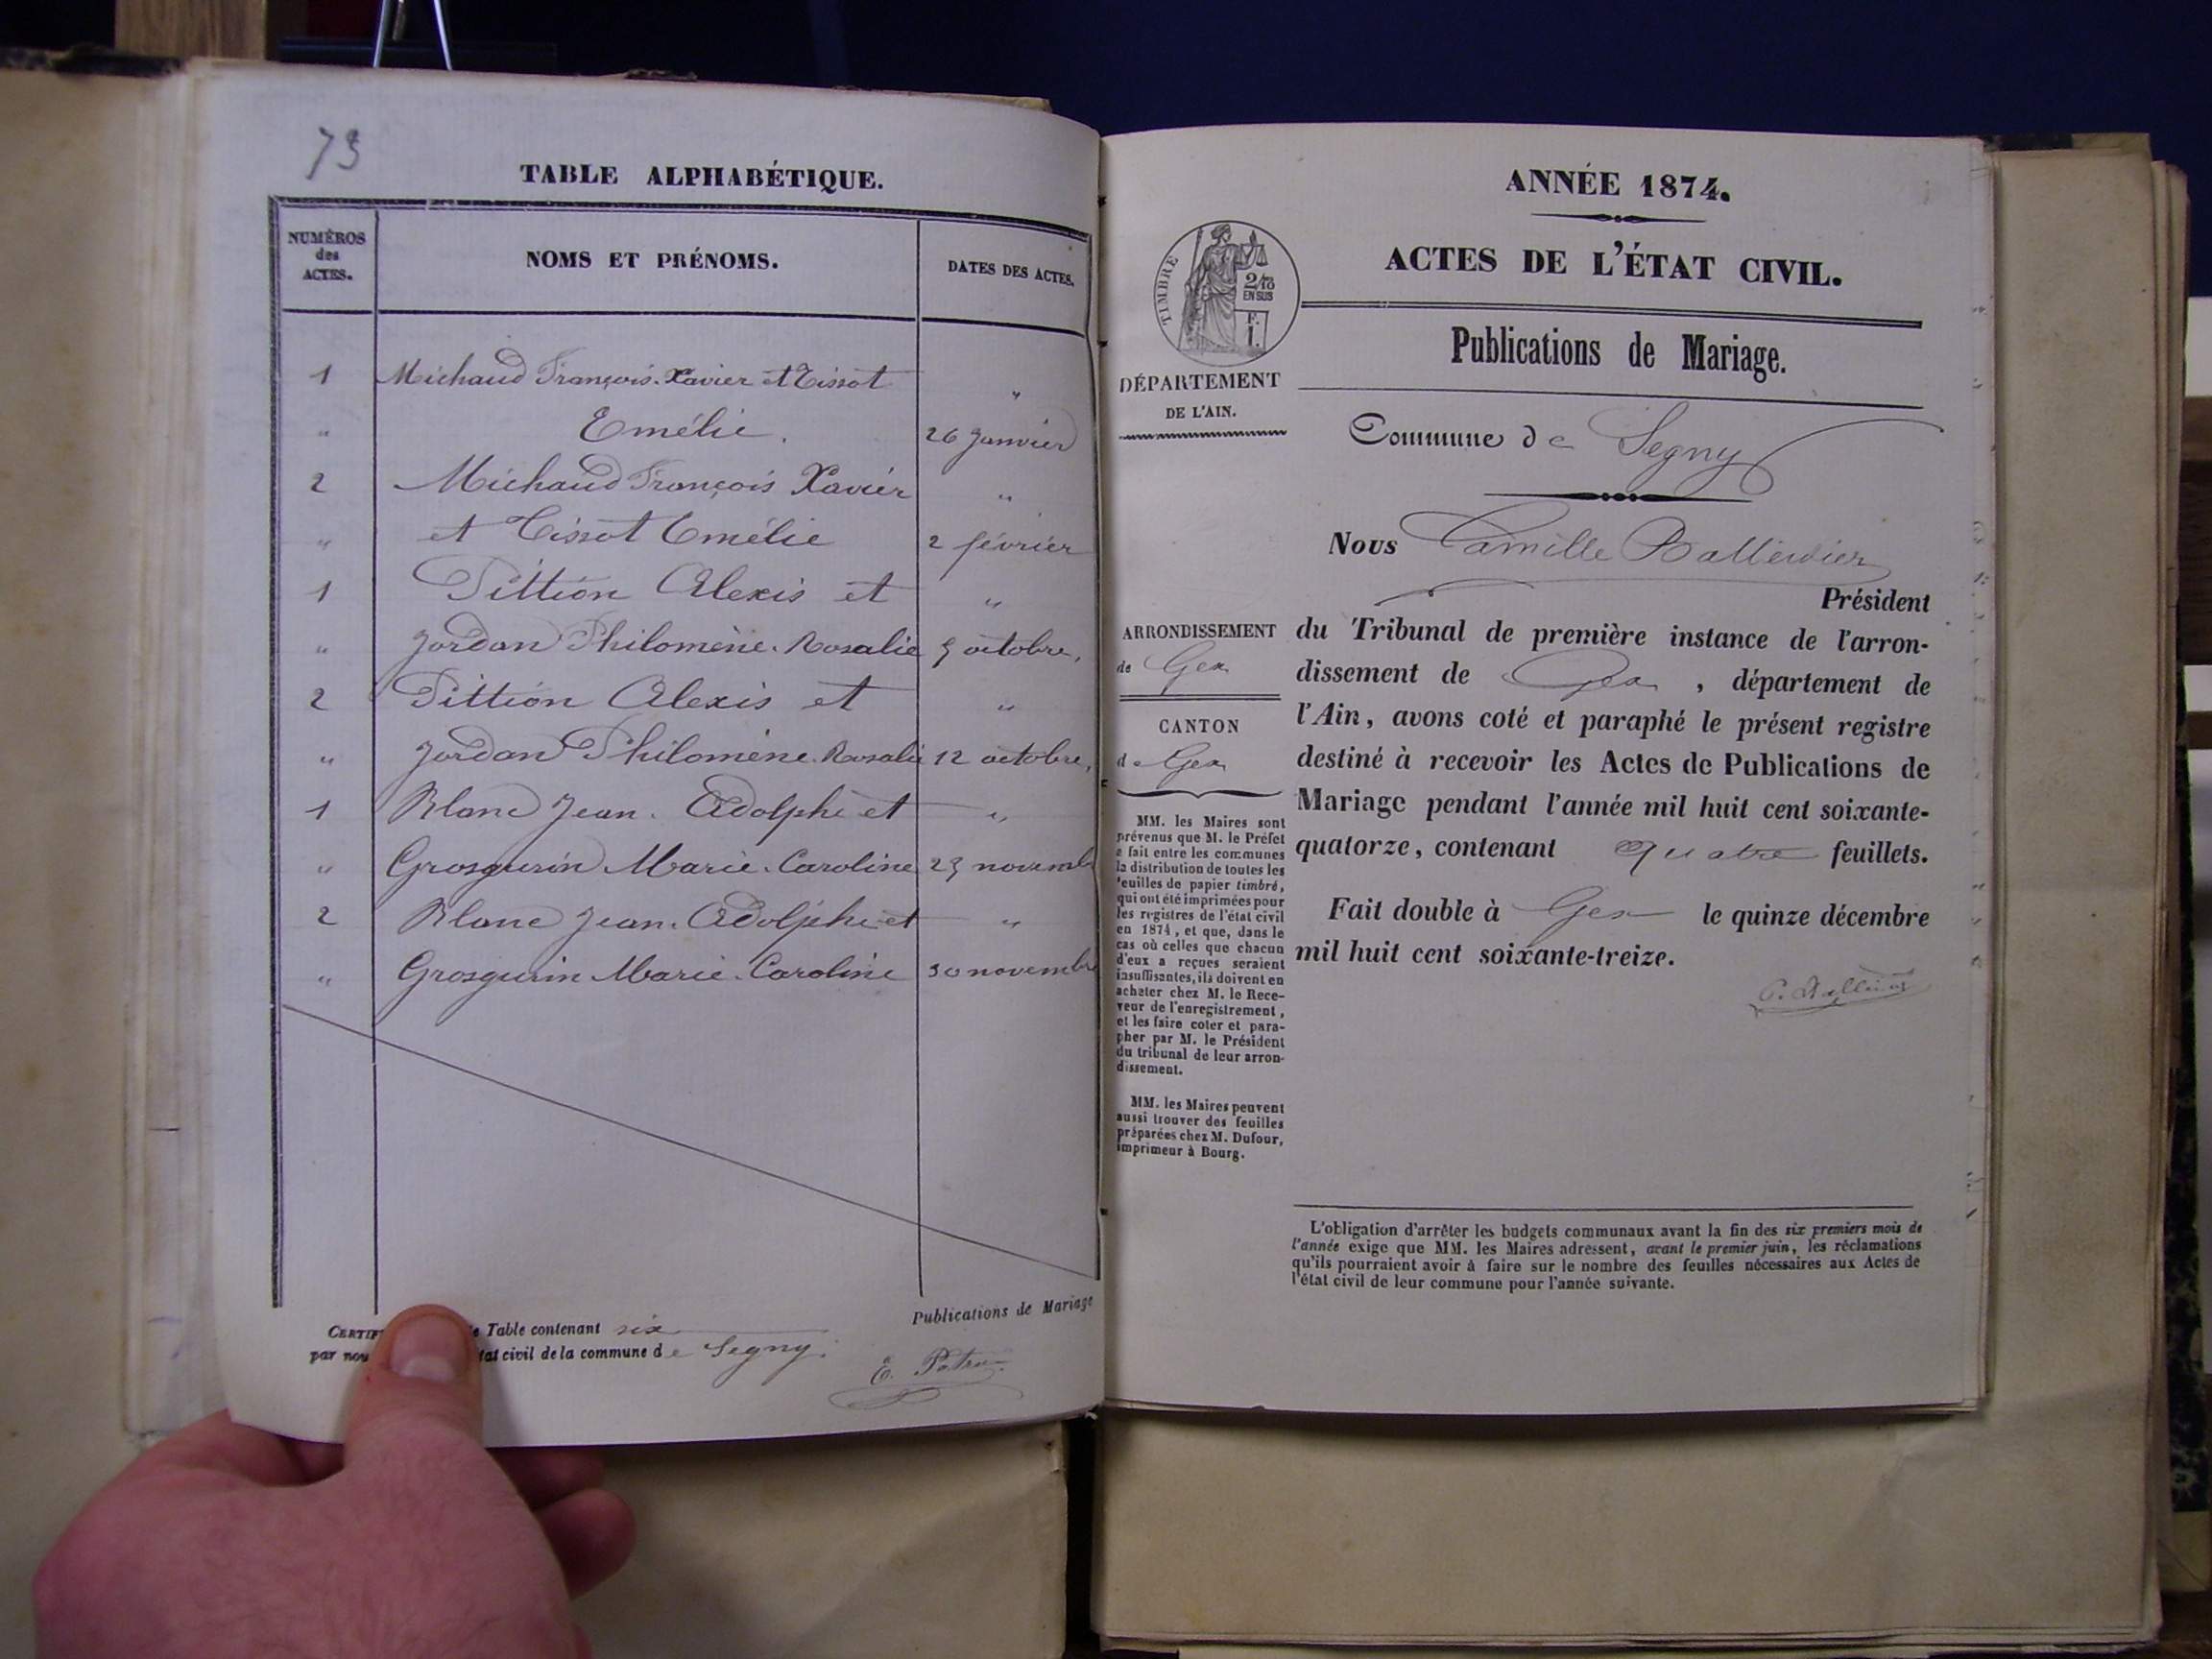 73
TABLE ALPHABÉTIQUE.
NUMÉROS
des
ACTES.
NOMS ET PRÉNOMS.
DATES DES ACTES.
1 Michaud François-Xavier et Tissot "
" Emélie. 26 Janvier
2 Michaud François Xavier "
" et Tissot Emélie 2 février
1 Pittion Alexis et "
" Jordan Philomène-Rosalie 5 octobre,
2 Pittion Alexis et "
" Jordan Philomène-Rosalie 12 octobre,
1 Blanc Jean-Adolphe et "
" Grosgurin Marie-Caroline 23 novembre
2 Blanc Jean-Adolphe et "
" Grosgurin Marie-Caroline 30 novembre
Publications de Mariage
Table contenant six
par nou
civil de la commune de Segny.
E. Patru
ANNÉE 1874.
ACTES DE L'ÉTAT CIVIL.
TIMBRE
2/10
EN SUS
F.
1.
Publications de Mariage.
DÉPARTEMENT
DE L'AIN.
Commune de Segny
Nous Camille
Président
ARRONDISSEMENT
de Gex
CANTON
de Gex
du Tribunal de première instance de l'arron-
dissement de Gex, département de
l'Ain, avons coté et paraphé le présent registre
destiné à recevoir les Actes de Publications de
Mariage pendant l'année mil huit cent soixante-
quatorze, contenant quatre feuillets.
Fait double à Gex le quinze décembre
mil huit cent soixante-treize.
MM. les Maires sont
prévenus que M. le Préfet
a fait entre les communes
la distribution de toutes les
feuilles de papier timbré,
qui ont été imprimées pour
les registres de l'état civil
en 1874, et que, dans le
cas où celles que chacun
d'eux a reçues seraient
insuffisantes, ils doivent en
acheter chez M. le Rece-
veur de l'enregistrement,
et les faire coter et para-
pher par M. le Président
du tribunal de leur arron-
dissement.
MM. les Maires peuvent
aussi trouver des feuilles
préparées chez M. Dufour,
imprimeur à Bourg.
L'obligation d'arrêter les budgets communaux avant la fin des six premiers mois de
l'année exige que MM. les Maires adressent, avant le premier juin, les réclamations
qu'ils pourraient avoir à faire sur le nombre des feuilles nécessaires aux Actes de
l'état civil de leur commune pour l'année suivante.